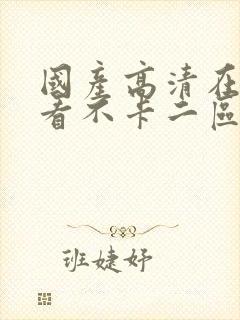 國產高清在
看不卡二區
班婕妤